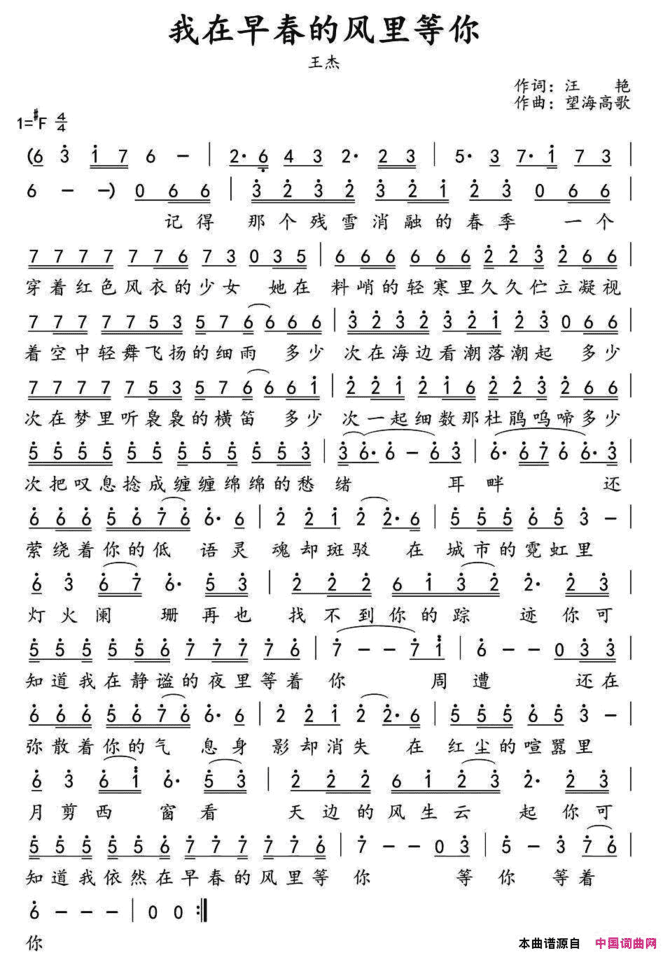 我在早春的风里等你
王杰
作词：汪 艳
作曲：望海高歌
1=#F 4/4
(6 3 1 7 6 - | 2· 6 4 3 2· 2 3 | 5· 3 7· 1 7 3 |
6 - -) 0 6 6 | 3 2 3 2 3 2 1 2 3 0 6 6 |
记得 那个残雪消融的春季 一个
7 7 7 7 7 7 6 7 3 0 3 5 | 6 6 6 6 6 6 2 2 3 2 6 6 |
穿着红色风衣的少女 她在 料峭的轻寒里久久伫立凝视
7 7 7 7 7 5 3 5 7 6 6 6 6 | 3 2 3 2 3 2 1 2 3 0 6 6 |
着空中轻舞飞扬的细雨 多少 次在海边看潮落潮起 多少
7 7 7 7 7 5 3 5 7 6 6 6 1 | 2 2 1 2 1 6 2 2 3 2 6 6 |
次在梦里听袅袅的横笛 多少 次一起细数那杜鹃呜啼多少
5 5 5 5 5 5 5 5 5 5 5 3 | 3 6· 6 - 6 3 | 6· 6 7 6 6· 3 |
次把叹息捻成缠缠绵绵的愁 绪 耳畔 还
6 6 6 5 6 7 6 6· 6 | 2 2 1 2 2· 6 | 5 5 5 6 5 3 - |
萦绕着你的低 语灵 魂却斑驳 在 城市的霓虹里
6 3 6 7 6· 5 3 | 2 2 2 6 1 3 2 2· 2 3 |
灯火阑 珊再也 找不到你的踪 迹你可
5 5 5 5 5 6 7 7 7 7 7 6 | 7 - - 7 1 | 6 - - 0 3 3 |
知道我在静谧的夜里等着 你 周遭 还在
6 6 6 5 6 7 6 6· 6 | 2 2 1 2 2· 6 | 5 5 5 6 5 3 - |
弥散着你的气 息身 影却消失 在 红尘的喧嚣里
6 3 6 1 6· 5 3 | 2 2 2 6 1 2 3 2· 2 3 |
月剪西 窗看 天边的风生云 起你可
5 5 5 5 5 6 7 7 7 7 7 6 | 7 - - 0 3 | 5 - 3 7 6 |
知道我依然在早春的风里等 你 等你 等着
6 - - - | 0 0 :||
你
本曲谱源自 中国词曲网